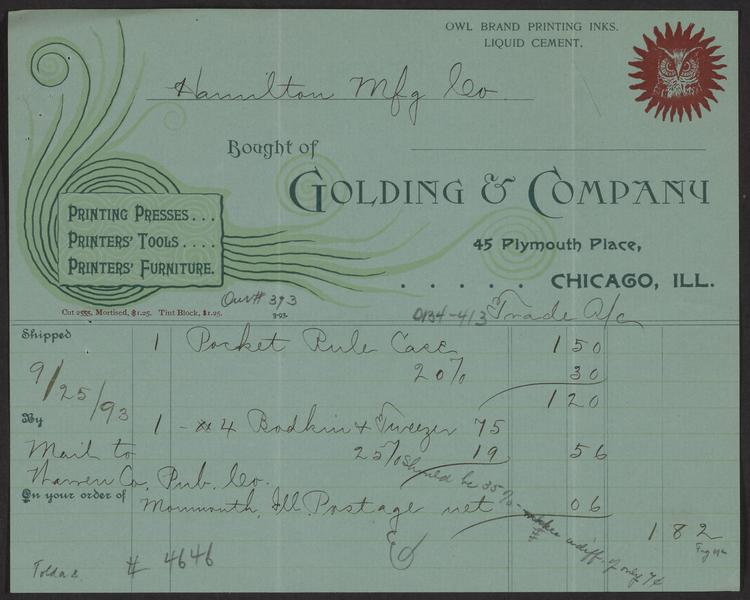 OWL BRAND PRINTING INKS.
LIQUID CEMENT.
Hamilton Mfg Co.
Bought of
GOLDING & COMPANY
45 Plymouth Place,
. . . . . CHICAGO, ILL.
PRINTING PRESSES...
PRINTERS' TOOLS....
PRINTERS' FURNITURE.
Cut 2555, Mortised, $1.25. Tint Block, $1.25.
Our # 393
3-93.
0134-413 Trade A/c
Shipped
9/25/93
1 Pocket Rule Case 1 50
20% 30
1 20
By
1 - #4 Bodkin & Tweezer 75
Mail to 25% 19 56
Should be 35% - makes a diff. of only 7¢
Warren Co. Pub. Co.
On your order of
Monmouth, Ill. Postage net 06
1 82
# 4646